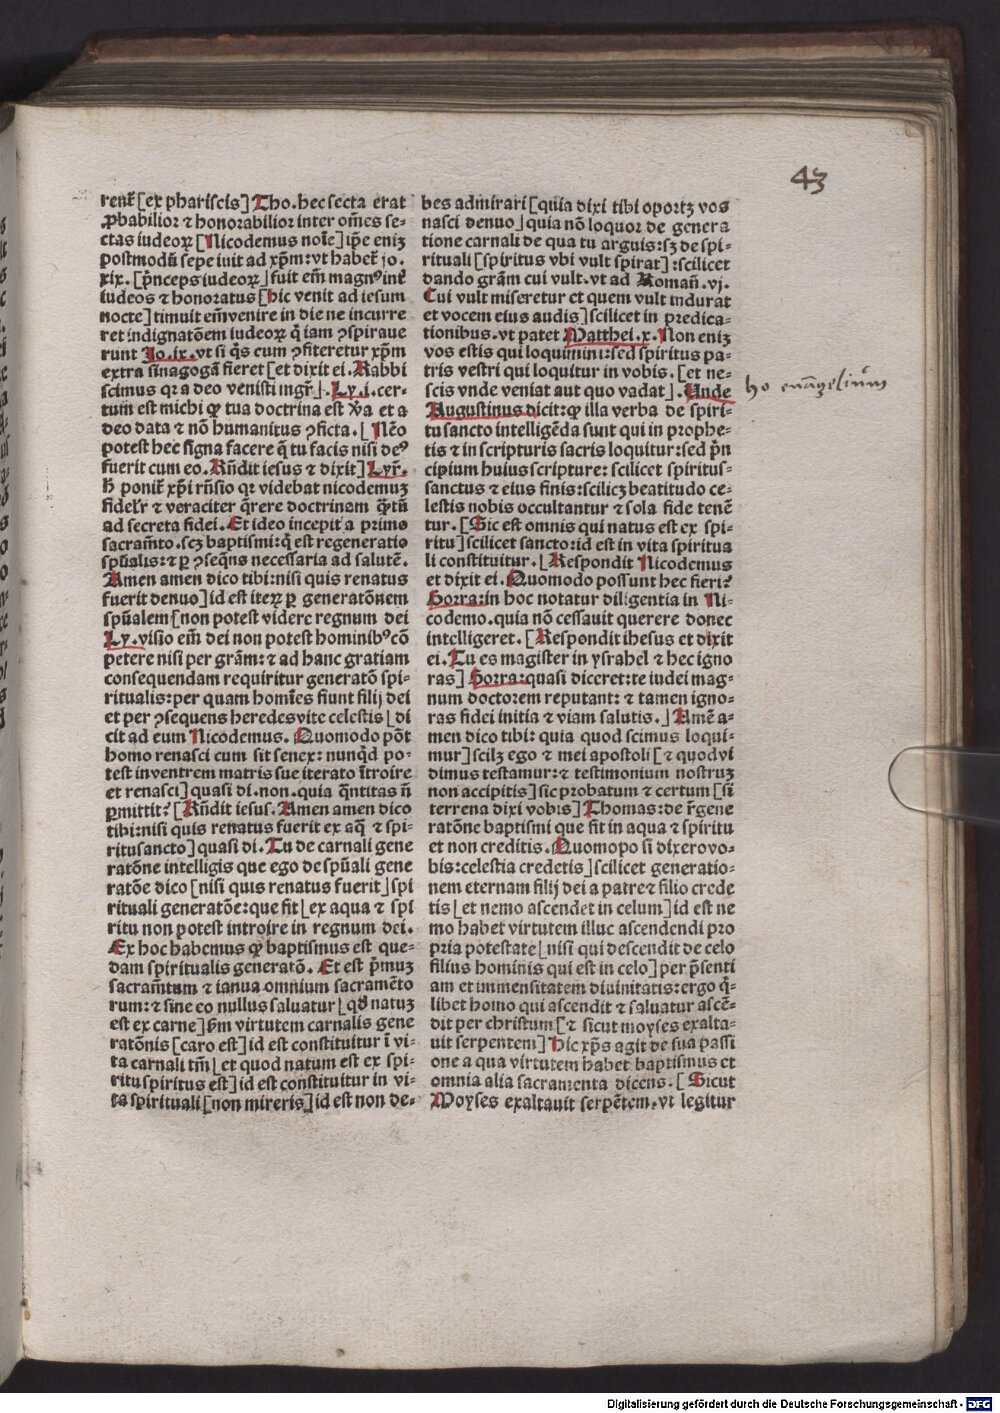 43
renť [ex phariseis] Tho. hec secta erat
ꝓbabilior ⁊ honorabilior inter om̄es se⸗
ctas iudeoꝝ [Nicodemus noīe] ip̄e eniꝫ
postmodū sepe iuit ad xp̄m: vt habeť jo.
xix. [p̄nceps iudeoꝝ] fuit em̄ magnꝰ int̄
iudeos ⁊ honoratus [hic venit ad iesum
nocte] timuit em̄ venire in die ne incurre
ret indignatōem iudeoꝝ q̄ iam ꝯspiraue
runt Jo. ix. vt si q̄s cum ꝯfiteretur xp̄m
extra sinagogā fieret [et dixit ei. Rabbi
scimus qꝛ a deo venisti mgr̄]. Ly. i. cer⸗
tum est michi ꝙ tua doctrina est v̄a et a
deo data ⁊ nō humanitus ꝯficta. [Nēo
potest hec signa facere q̄ tu facis nisi deꝰ
fuerit cum eo. Rn̄dit iesus ⁊ dixit] Lyr̄.
h̄ poniť xp̄i rn̄sio qꝛ videbat nicodemuꝫ
fidelr̄ ⁊ veraciter q̄rere doctrinam q̄ꝫtū
ad secreta fidei. Et ideo incepit a primo
sacram̄to. scꝫ baptismi: q̄ est regeneratio
spūalis: ⁊ ꝑ ꝯseq̄ns necessaria ad salutē.
Amen amen dico tibi: nisi quis renatus
fuerit denuo] id est iteꝝ ꝑ generatōnem
spūalem [non potest videre regnum dei
Ly. visio em̄ dei non potest hominibꝰ cō
petere nisi per grām: ⁊ ad hanc gratiam
consequendam requiritur generatō spi⸗
ritualis: per quam homīes fiunt filij dei
et per ꝯsequens heredes vite celestis [di
cit ad eum Nicodemus. Quomodo pōt
homo renasci cum sit senex: nunqd̄ po⸗
test in ventrem matris sue iterato ītroire
et renasci] quasi di. non. quia q̄ntitas n̄
ꝑmittit? [Rn̄dit iesus. Amen amen dico
tibi: nisi quis renatus fuerit ex aq̄ ⁊ spi⸗
ritusancto] quasi di. Tu de carnali gene
ratōne intelligis que ego de spūali gene
ratōe dico [nisi quis renatus fuerit] spi
rituali generatōe: que fit [ex aqua ⁊ spi
ritu non potest introire in regnum dei.
Ex hoc habemus ꝙ baptismus est que⸗
dam spiritualis generatō. Et est p̄muꝫ
sacram̄tum ⁊ ianua omnium sacramēto
rum: ⁊ sine eo nullus saluatur [qd̄ natuꝫ
est ex carne] ẜm virtutem carnalis gene
ratōnis [caro est] id est constituitur ī vi⸗
ta carnali tm̄ [et quod natum est ex spi⸗
ritu spiritus est] id est constituitur in vi⸗
ta spirituali [non mireris] id est non de⸗
bes admirari [quia dixi tibi oportꝫ vos
nasci denuo] quia nō loquor de genera
tione carnali de qua tu arguis: sꝫ de spi⸗
rituali [spiritus vbi vult spirat]: scilicet
dando grām cui vult. vt ad Roman̄. vj.
Cui vult miseretur et quem vult indurat
et vocem eius audis] scilicet in predica⸗
tionibus. vt patet Matthei. x. Non eniꝫ
vos estis qui loquimini: sed spiritus pa⸗
tris vestri qui loquitur in vobis. [et ne⸗
scis vnde veniat aut quo vadat]. Unde
Augustinus dicit: ꝙ illa verba de spiri⸗
tusancto intelligēda sunt qui in prophe⸗
tis ⁊ in scripturis sacris loquitur: sed p̄n
cipium huius scripture: scilicet spiritus⸗
sanctus ⁊ eius finis: scilicꝫ beatitudo ce⸗
lestis nobis occultantur ⁊ sola fide tenē
tur. [Sic est omnis qui natus est ex spi⸗
ritu] scilicet sancto: id est in vita spiritua
li constituitur. [Respondit Nicodemus
et dixit ei. Quomodo possunt hec fieri?
Gorra: in hoc notatur diligentia in Ni⸗
codemo. quia nō cessauit querere donec
intelligeret. [Respondit ihesus et dixit
ei. Tu es magister in ysrahel ⁊ hec igno
ras] Gorra: quasi diceret: te iudei mag⸗
num doctorem reputant: ⁊ tamen igno⸗
ras fidei initia ⁊ viam salutis.] Amē a⸗
men dico tibi: quia quod scimus loqui⸗
mur] scilꝫ ego ⁊ mei apostoli [⁊ quod vi
dimus testamur: ⁊ testimonium nostruꝫ
non accipitis] sic probatum ⁊ certum [si
terrena dixi vobis] Thomas: de r̄gene
ratōne baptismi que fit in aqua ⁊ spiritu
et non creditis. Quomopo si dixero vo⸗
bis: celestia credetis] scilicet generatio⸗
nem eternam filij dei a patre ⁊ filio crede
tis [et nemo ascendet in celum] id est ne
mo habet virtutem illuc ascendendi pro
pria potestate [nisi qui descendit de celo
filius hominis qui est in celo] per p̄senti
am et immensitatem diuinitatis: ergo q̄⸗
libet homo qui ascendit ⁊ saluatur ascē⸗
dit per christum [⁊ sicut moyses exalta⸗
uit serpentem] hic xp̄s agit de sua passi
one a qua virtutem habet baptismus et
omnia alia sacramenta dicens. [Sicut
Moyses exaltauit serpētem. vt legitur
ho euāgeliūm
Digitalisierung gefördert durch die Deutsche Forschungsgemeinschaft - DFG